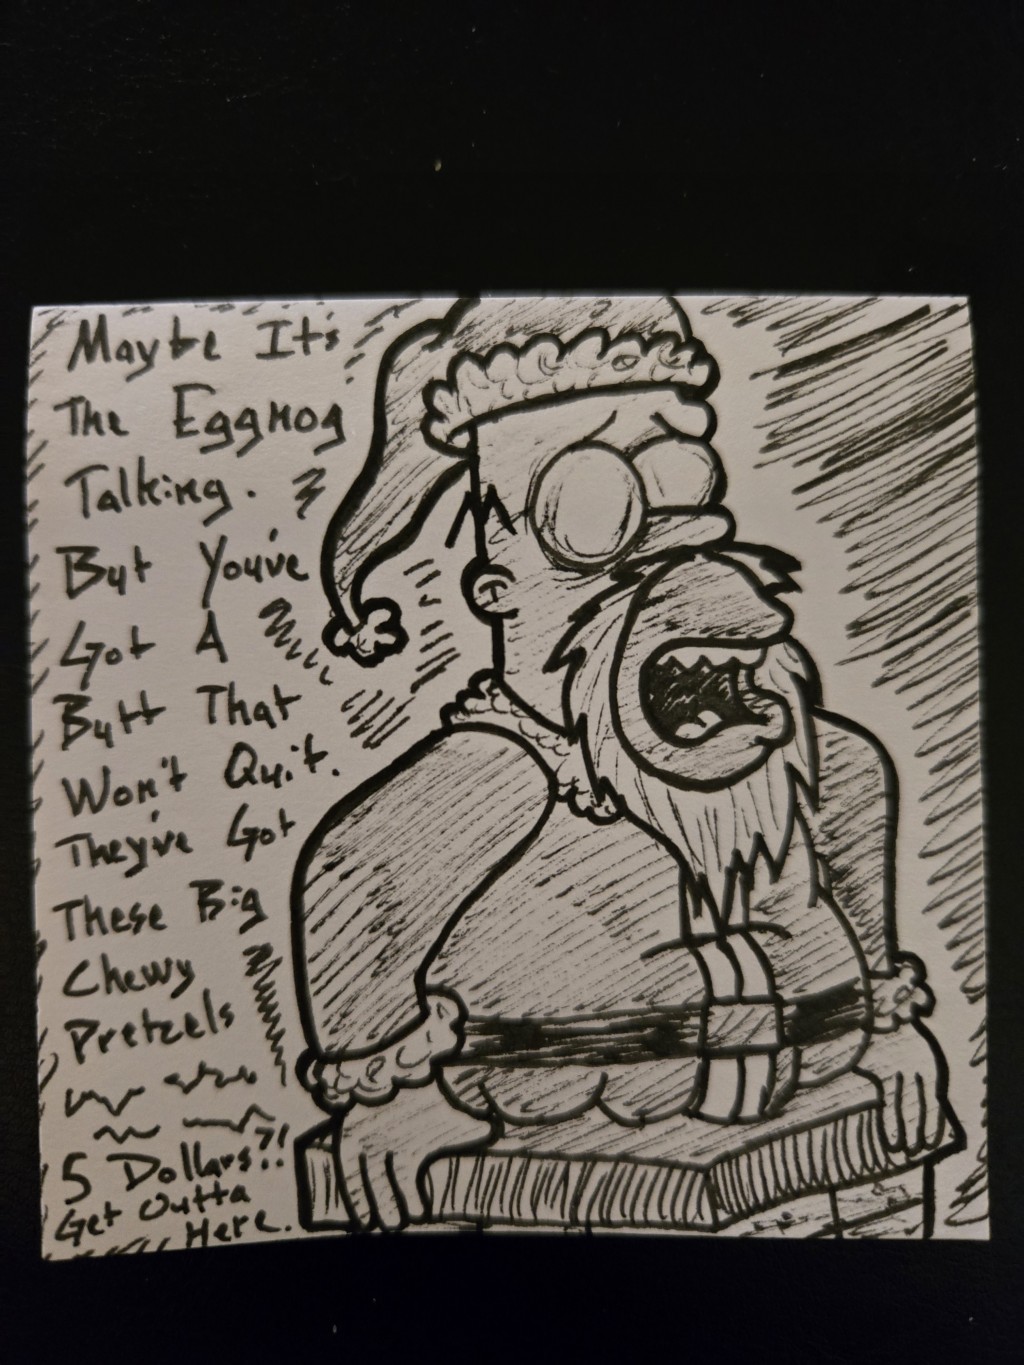 Maybe It's
The Eggnog
Talking.
But You've
Got A
Butt That
Won't Quit.
They've Got
These Big
Chewy
Pretzels
5 Dollars?!
Get Outta
Here.